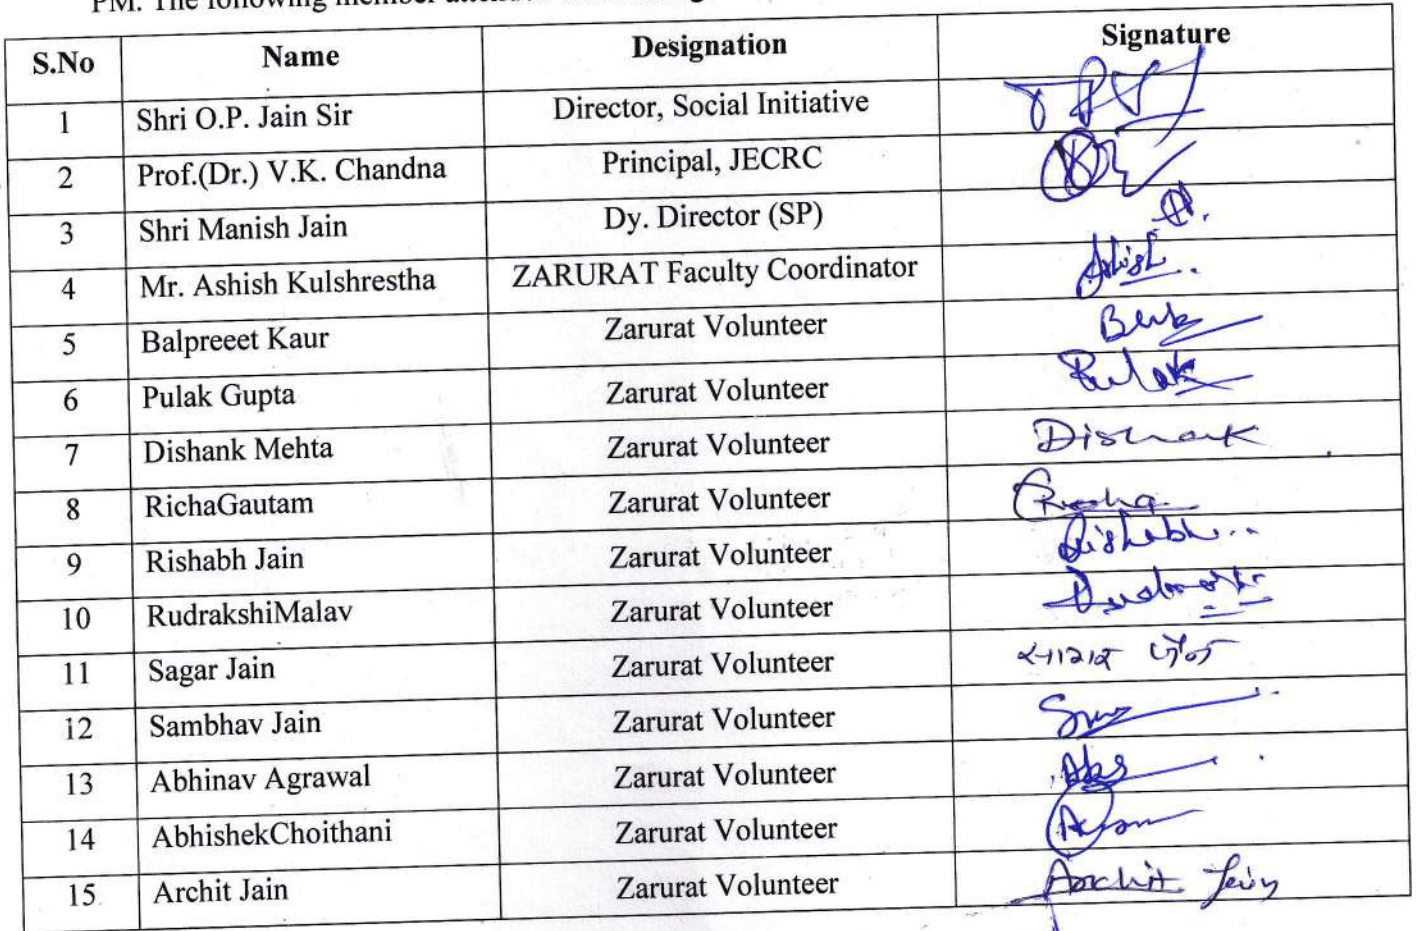 PM. The following member
S.No Name Designation Signature
1 Shri O.P. Jain Sir Director, Social Initiative
2 Prof.(Dr.) V.K. Chandna Principal, JECRC
3 Shri Manish Jain Dy. Director (SP)
4 Mr. Ashish Kulshrestha ZARURAT Faculty Coordinator Ashish
5 Balpreeet Kaur Zarurat Volunteer
6 Pulak Gupta Zarurat Volunteer Pulak
7 Dishank Mehta Zarurat Volunteer Dishank
8 RichaGautam Zarurat Volunteer Richa
9 Rishabh Jain Zarurat Volunteer Rishabh
10 RudrakshiMalav Zarurat Volunteer
11 Sagar Jain Zarurat Volunteer सागर जैन
12 Sambhav Jain Zarurat Volunteer
13 Abhinav Agrawal Zarurat Volunteer
14 AbhishekChoithani Zarurat Volunteer
15 Archit Jain Zarurat Volunteer Archit Jain